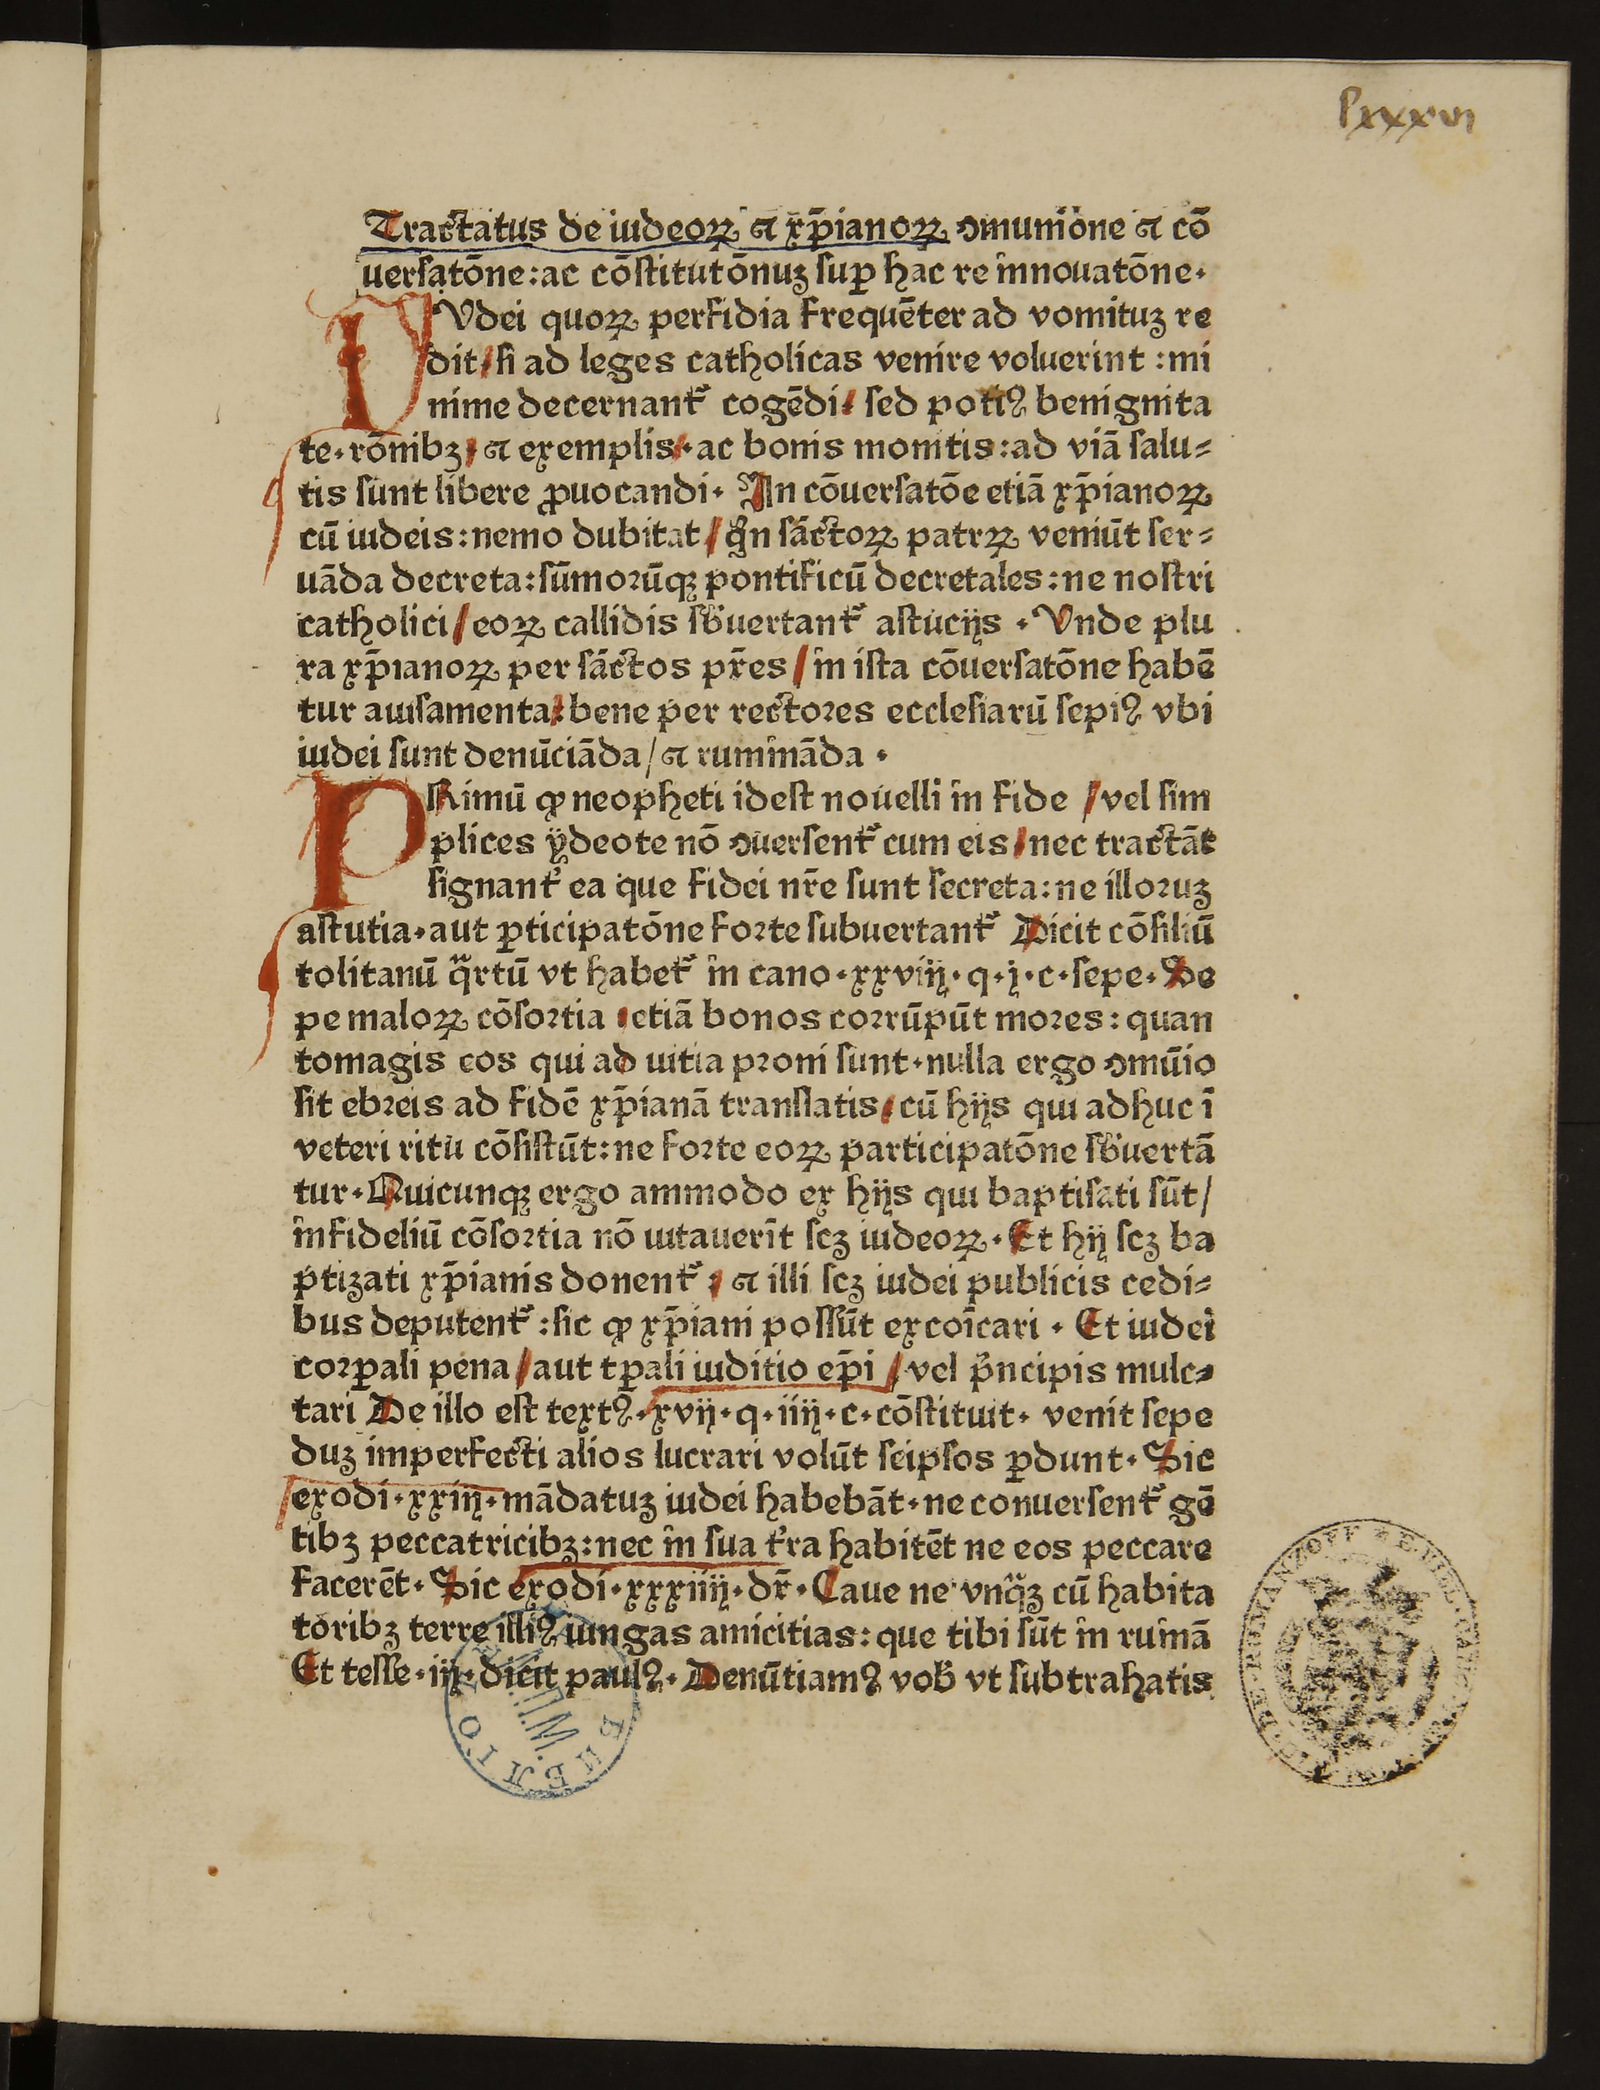 lxxxvi
Tractatus de iudeoꝝ ⁊ xp̄ianoꝝ ꝯmunione ⁊ cō
uersatōne: ac cōstitutōnuꝫ suꝑ hac re innouatōne.
IUdei quoꝝ perfidia frequēter ad vomituꝫ re
dit/ si ad leges catholicas venire voluerint: mi
nime decernant᷑ cogēdi/ sed potiꝰ benignita
te. rōnibꝫ/ ⁊ exemplis/. ac bonis monitis: ad viā salu⸗
tis sunt libere ꝓuocandi. In cōuersatōe etiā xp̄ianoꝝ
cū iudeis: nemo dubitat/ qͥn sāctoꝝ patrꝝ veniūt ser⸗
uāda decreta: sūmorūqꝫ pontificū decretales: ne nostri
catholici/ eoꝝ callidis sb̄uertant᷑ astucijs. Vnde plu
ra xp̄ianoꝝ per sāctos pr̄es/ in ista cōuersatōne habē
tur auisamenta: bene per rectores ecclesiarū sepiꝰ vbi
iudei sunt denūciāda/ ⁊ rumināda.
PRimū ꝙ neopheti idest nouelli in fide/ vel sim
plices ẏdeote nō ꝯuersent᷑ cum eis/ nec tractāt
signant᷑ ea que fidei nr̄e sunt secreta: ne illoruꝫ
astutia. aut ꝑticipatōne forte subuertant᷑ Dicit cōsiliū
tolitanū qᷓrtū vt habet᷑ in cano. xxviij. q. j. c. sepe. Se
pe maloꝝ cōsortia/ etiā bonos corrūpūt mores: quan
tomagis eos qui ad uitia proni sunt. nulla ergo ꝯmūio
sit ebreis ad fidē xp̄ianā translatis/ cū hijs qui adhuc ī
veteri ritu cōsistūt: ne forte eoꝝ participatōne sb̄uertā
tur. Quicunqꝫ ergo ammodo ex hijs qui baptisati sūt/
infideliū cōsortia nō uitauerīt scꝫ iudeoꝝ. Et hij scꝫ ba
ptizati xp̄ianis donent᷑: ⁊ illi scꝫ iudei publicis cedi⸗
bus deputent᷑: sic ꝙ xp̄iani possūt excoīcari. Et iudei
corꝑali pena/ aut tꝑali iuditio ep̄i/ vel pͥncipis mulc⸗
tari De illo est textꝰ. xvij. q. iiij. c. cōstituit. venit sepe
duꝫ imperfecti alios lucrari volūt seipsos ꝑdunt. Sic
exodi. xxiij. mādatuꝫ iudei habebāt. ne conuersent᷑ gē
tibꝫ peccatricibꝫ: nec in sua t᷑ra habitēt ne eos peccare
facerēt. Sic exodi. xxxiiij. dr̄. Caue ne vnqᷓꝫ cū habita
toribꝫ terre illiꝰ iungas amicitias: que tibi sūt in ruinā
Et tesse. iij. dicit paulꝰ. Denūtiamꝰ vob̄ vt subtrahatis